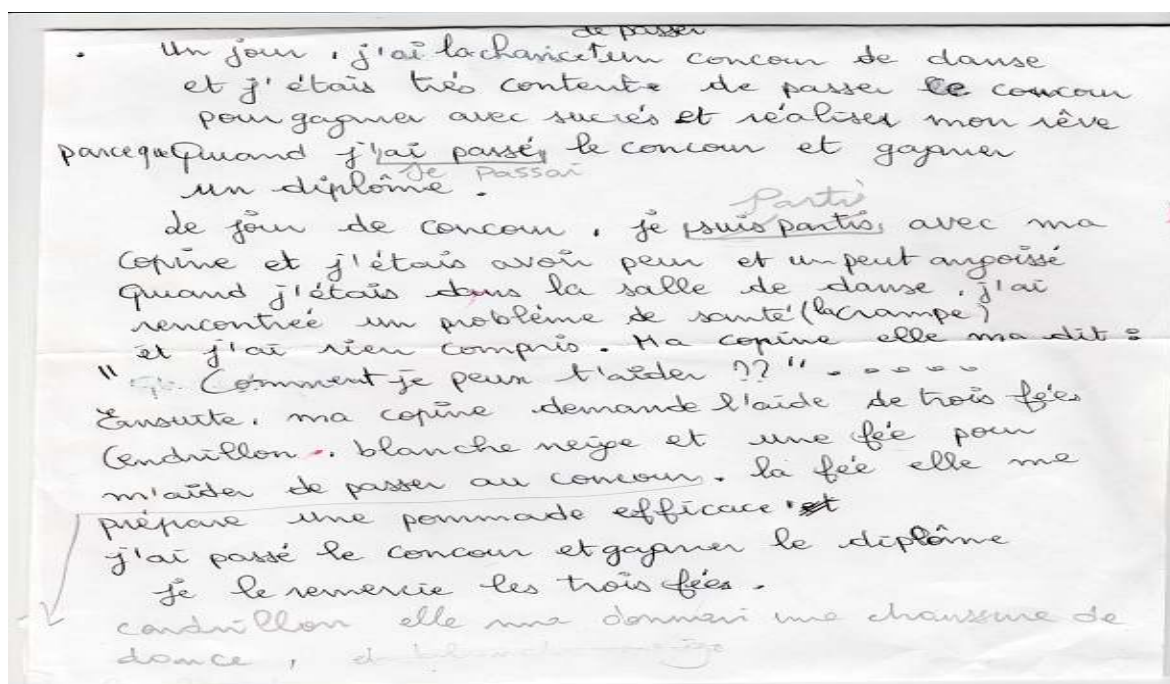 de passer
. Un jour, j'ai la chance un concour de danse
et j'étais trés contente de passer le concour
pour gagner avec sucrés et réaliser mon rêve
parceque Quand j'ai passé, le concour et gagner
Je Passai
un diplôme.
Partis
Le jour de concour, je suis partis, avec ma
copine et j'étais avoir peur et un peut angoissé
Quand j'étais dans la salle de danse, j'ai
rencontrée un problème de santé (la crampe)
et j'ai rien compris. Ma copine elle ma dit :
" Comment je peux t'aider ?? " . . . . .
Ensuite, ma copine demande l'aide de trois fées
Cendrillon . blanche neige et une fée pour
m'aider de passer au concour. la fée elle me
prépare une pommade efficace et
j'ai passé le concour et gagner le diplôme
je le remercie les trois fées.
candrillon elle ma donneri une chaussure de
dance, d blanche neige